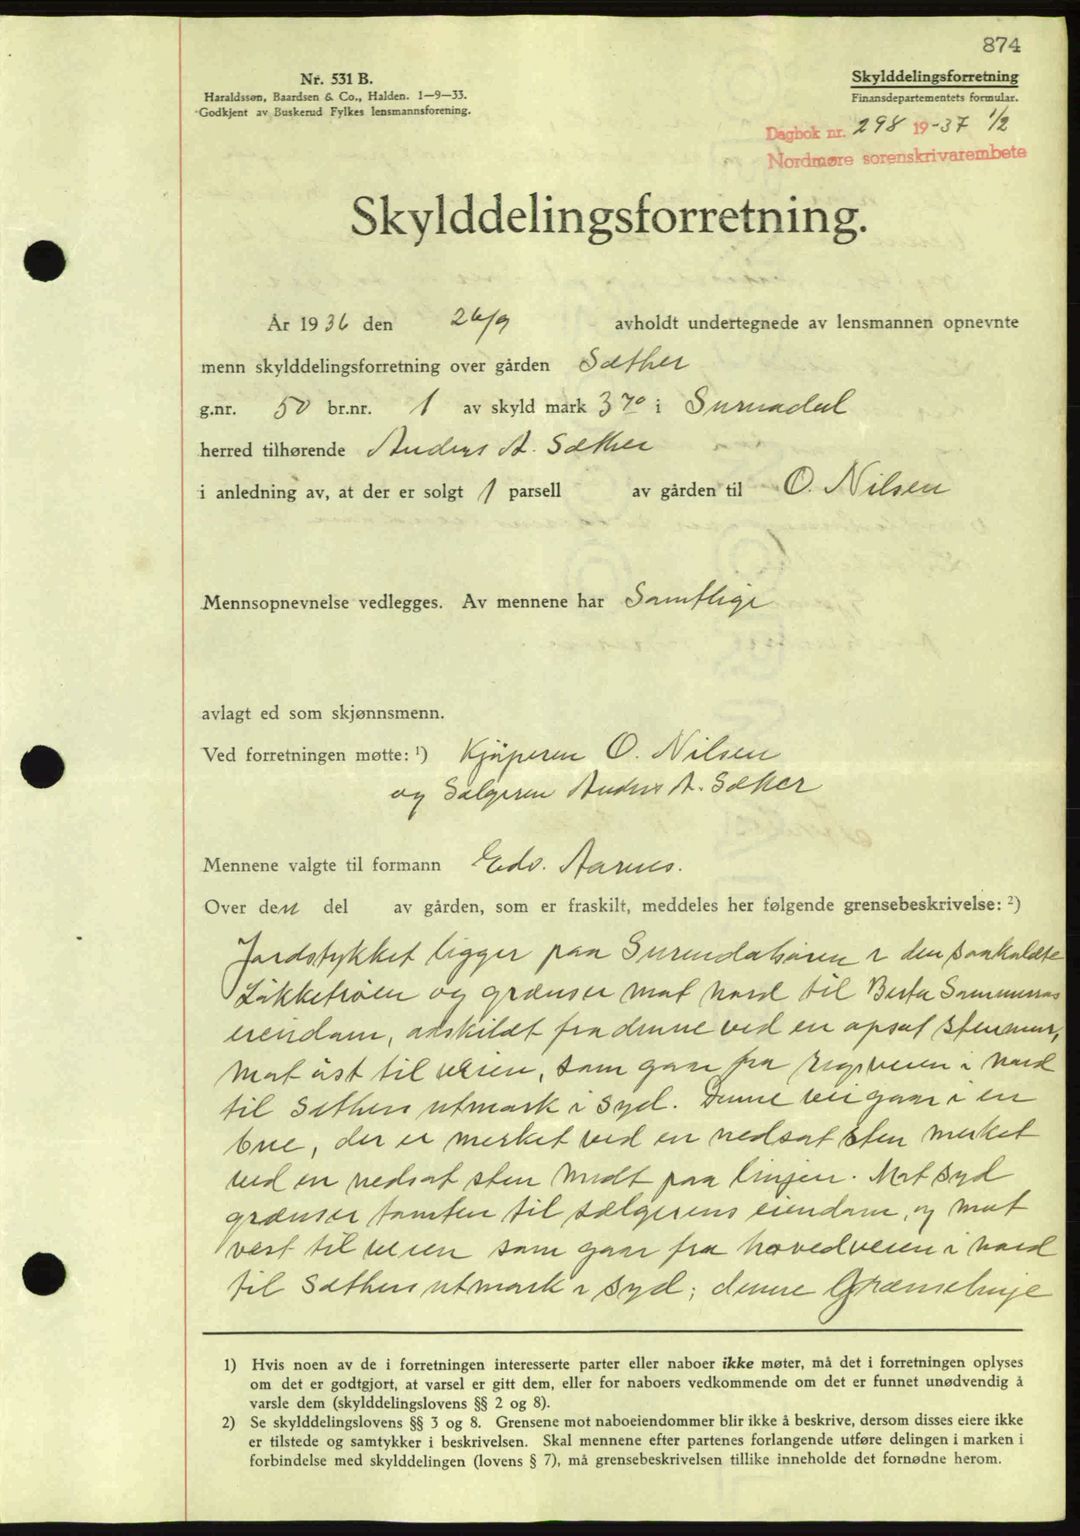 874
Nr. 531 B.
Haraldssøn, Baardsen & Co., Halden. 1—9—33.
Godkjent av Buskerud Fylkes lensmannsforening.
Skylddelingsforretning
Finansdepartementets formular.
Dagbok nr. 298 19-37 1/2
Nordmøre sorenskrivarembete
Skylddelingsforretning.
År 1936 den 26/9 avholdt undertegnede av lensmannen opnevnte
menn skylddelingsforretning over gården Sæther
g.nr. 50 br.nr. 1 av skyld mark 3 70 i Surnadal
herred tilhørende Anders A. Sæther
i anledning av, at der er solgt 1 parsell av gården til O. Nilsen
Mennsopnevnelse vedlegges. Av mennene har Samtlige
avlagt ed som skjønnsmenn.
Ved forretningen møtte: 1) Kjøperen O. Nilsen
og Sælgeren Anders A. Sæther
Mennene valgte til formann Edv. Aarnes.
Over den del av gården, som er fraskilt, meddeles her følgende grensebeskrivelse: 2)
Jordstykket ligger paa Surndalsøren i den saakaldte
Løkketrøen og grænser mot nord til Berta
eiendom, adskildt fra denne ved en opsat stenmur,
mot øst til veien, som gaar fra Rigsveien i nord
til Sæthers utmark i syd. Denne vei gaar i en
bue, der er merket ved en nedsat sten merket
ved en nedsat sten midt paa linjen. Mot syd
grænser tomten til sælgerens eiendom, og mot
vest til veien som gaar fra hovedveien i nord
til Sæthers utmark i syd; denne Grænselinje
1) Hvis noen av de i forretningen interesserte parter eller naboer ikke møter, må det i forretningen oplyses
om det er godtgjort, at varsel er gitt dem, eller for naboers vedkommende om det er funnet unødvendig å
varsle dem (skylddelingslovens §§ 2 og 8).
2) Se skylddelingslovens §§ 3 og 8. Grensene mot naboeiendommer blir ikke å beskrive, dersom disses eiere ikke
er tilstede og samtykker i beskrivelsen. Skal mennene efter partenes forlangende utføre delingen i marken i
forbindelse med skylddelingen (lovens § 7), må grensebeskrivelsen tillike inneholde det fornødne herom.